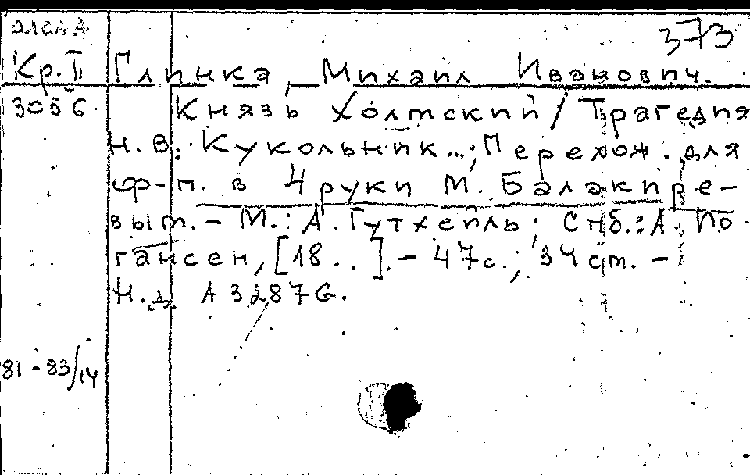 373
Кр. I Глинка, Михаил Иванович.
3056 Князь Холмский / Трагедия
Н. В. Кукольник...; Перелож. для
ф-п. в 4 руки М. Балакире-
вым. - М.: А. Гутхейль; СПб.: А. Ио-
гансен, [18 . .]. - 47 с.; 34 см. -
Н.д. А 3287 G.
81-83/14